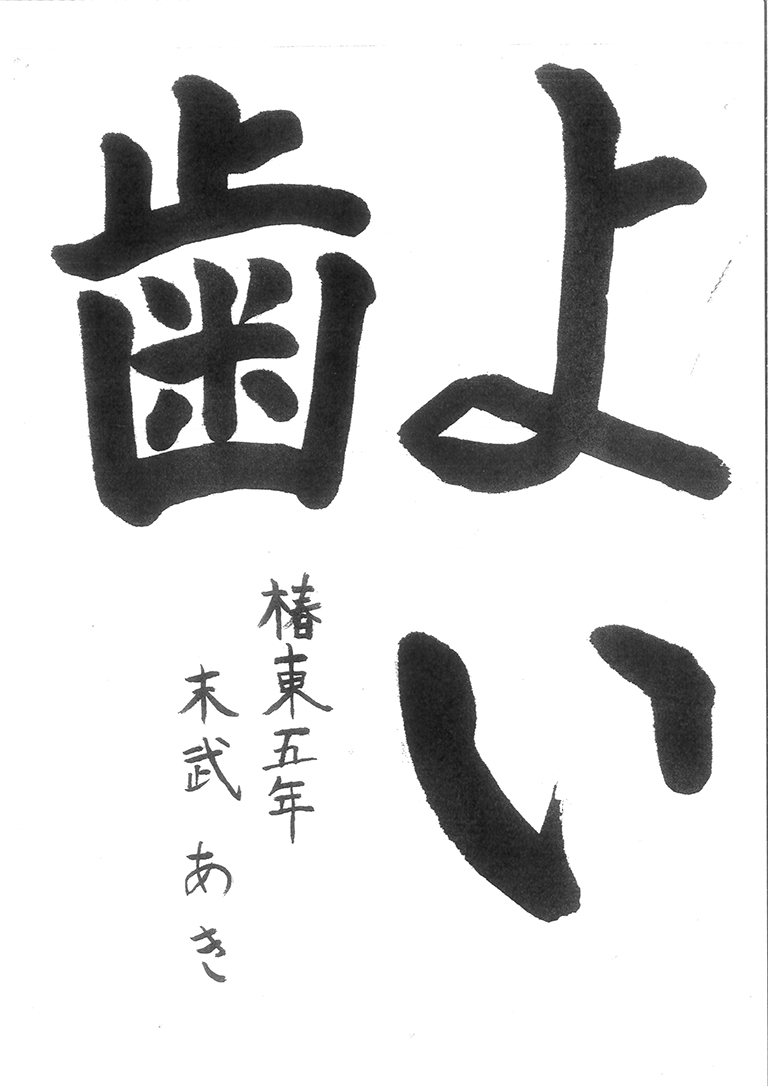 よい
歯
椿東五年
末武 あき